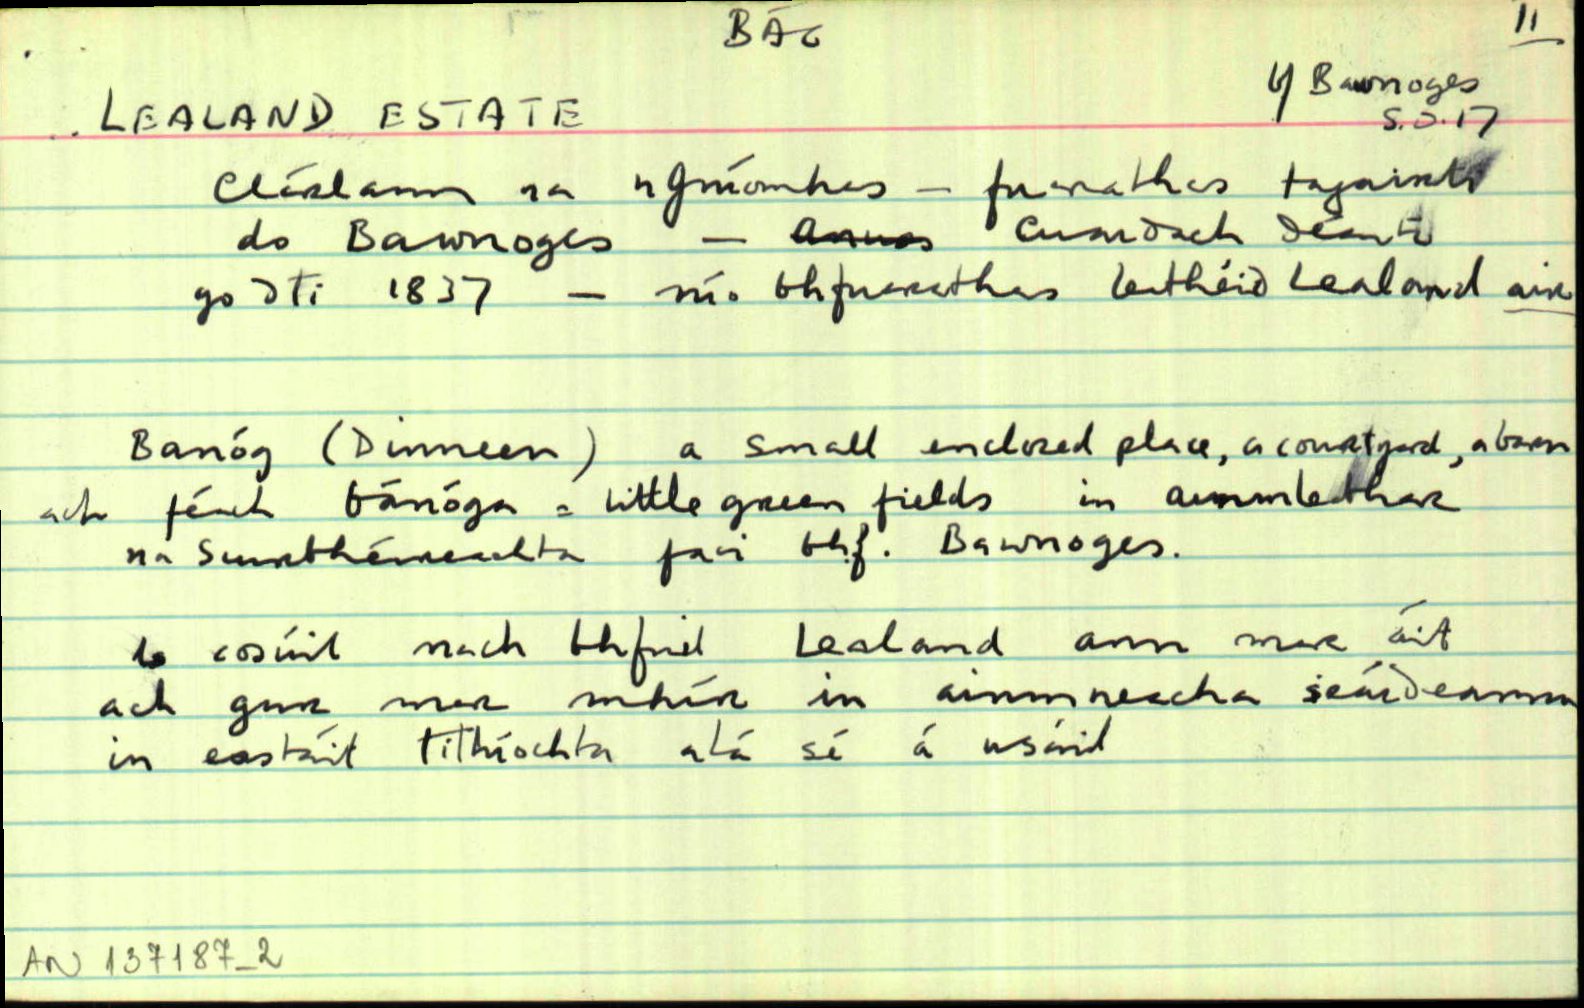 BÁC
II
LEALAND ESTATE
bf Bawnoges
S.O.17
Clárlann na nGníomhas - fuarathas tagairtí
do Bawnoges - cuardach déanta
go dtí 1837 - níor bhfuarathas leithéid Lealand air
Banóg (Dinneen) a small enclosed place, a courtyard, a barn
ach féach bánóga = little green fields in ainmleabhar
na Suirbhéireachta faoi bhf. Bawnoges.
Is cosúil nach bhfuil Lealand ann mar áit
ach gur mar mhír in ainmneacha
in eastáit tithíochta atá sé á úsáid
AN 137187_2